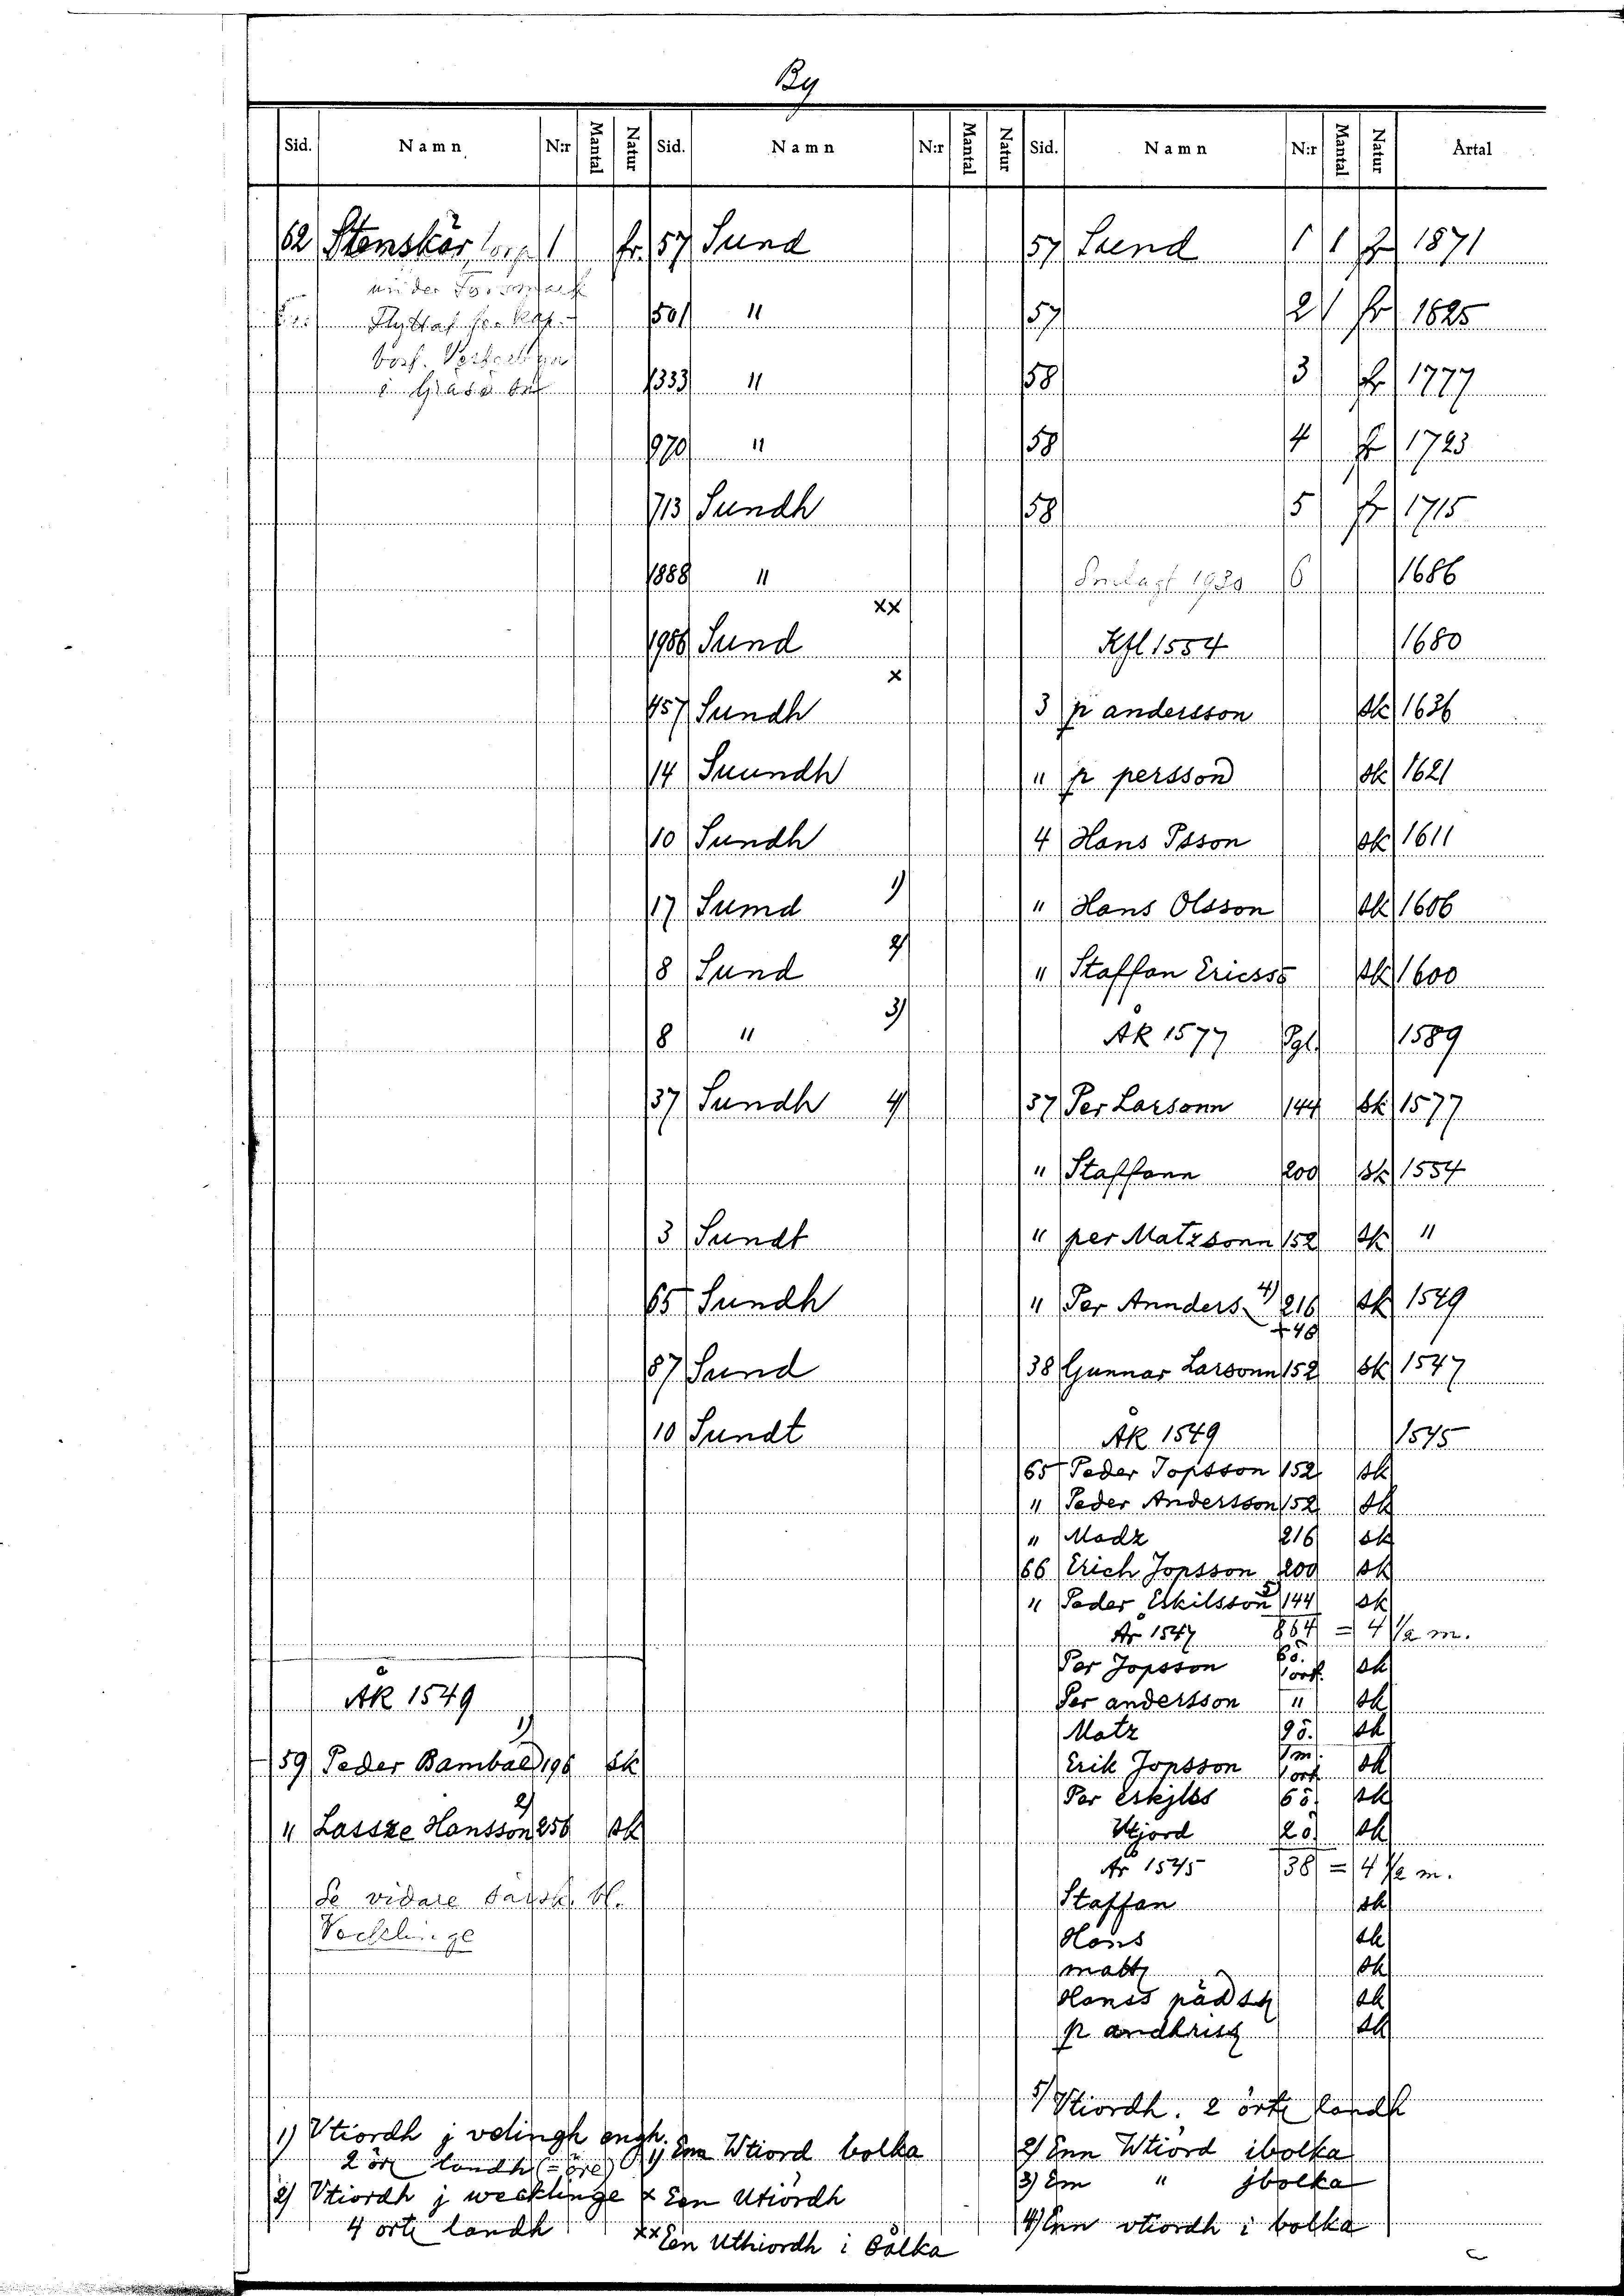 By
Sid. Namn N:r Mantal Natur Sid. Namn N:r Mantal Natur Sid. Namn N:r Mantal Natur Årtal
62 Stenskär, torp 1 fr. 57 Sund 57 Sund 1 1 fr 1871
under Forsmark
Flyttat 501 " 57 2 1 fr 1825
1333 " 58 3 fr 1777
i Gräsö
970 " 58 4 fr 1723
713 Sundh 58 5 fr 1715
1888 " 1930 6 1686
1986 Sund xx Kfl 1554 1680
457 Sundh x 3 p andersson sk 1636
14 Suundh " p persson sk 1621
10 Sundh 4 Hans Psson sk 1611
17 Sumd 1) " Hans Olsson sk 1606
8 Sund 2) " Staffan Ericss sk 1600
8 " 3) ÅK 1577 Pgl. 1589
37 Sundh 4) 37 Per Larsonn 144 sk 1577
" Staffann 200 sk 1554
3 Sundt " per Matzsonn 152 sk "
65 Sundh " Per Annders 4) 216 sk 1549
+48
87 Sund 38 Gunnar Larsonn 152 sk 1547
10 Sundt ÅK 1549 1545
65 Peder Jopsson 152 sk
" Peder Andersson 152 sk
" Madz 216 sk
66 Erich Jopsson 200 sk
" Peder Eskilsson 5) 144 sk
År 1547 864 = 4 1/2 m.
Per Jopsson 6ö. 1 ört. sk
ÅK 1549
Per andersson " sk
Matz 9ö. sk
59 Peder Bambal 1) 196 sk
Erik Jopsson 1 m. 1 ört sk
Per Eskjlss 6ö. sk
" Lassze Hansson 2) 256 sk
Utjord 2ö. sk
År 1545 38 = 4 1/2 m.
Se vidare särsk. bl.
Staffan sk
Vecklinge
Hans sk
matz sk
Hanss sk
p sk
5) Vtiordh. 2 örtz landh
1) Vtiordh j velingh engh.
2 örz landh (= öre)
1) Enn Wtiord bolka
2) Enn Wtiord ibolka
3) Em " jbolka
2) Vtiordh j wecklinge
4 örtz landh
x Een Utiördh
4) Enn vtiordh i bolka
xx Een Uthiordh i Bålka